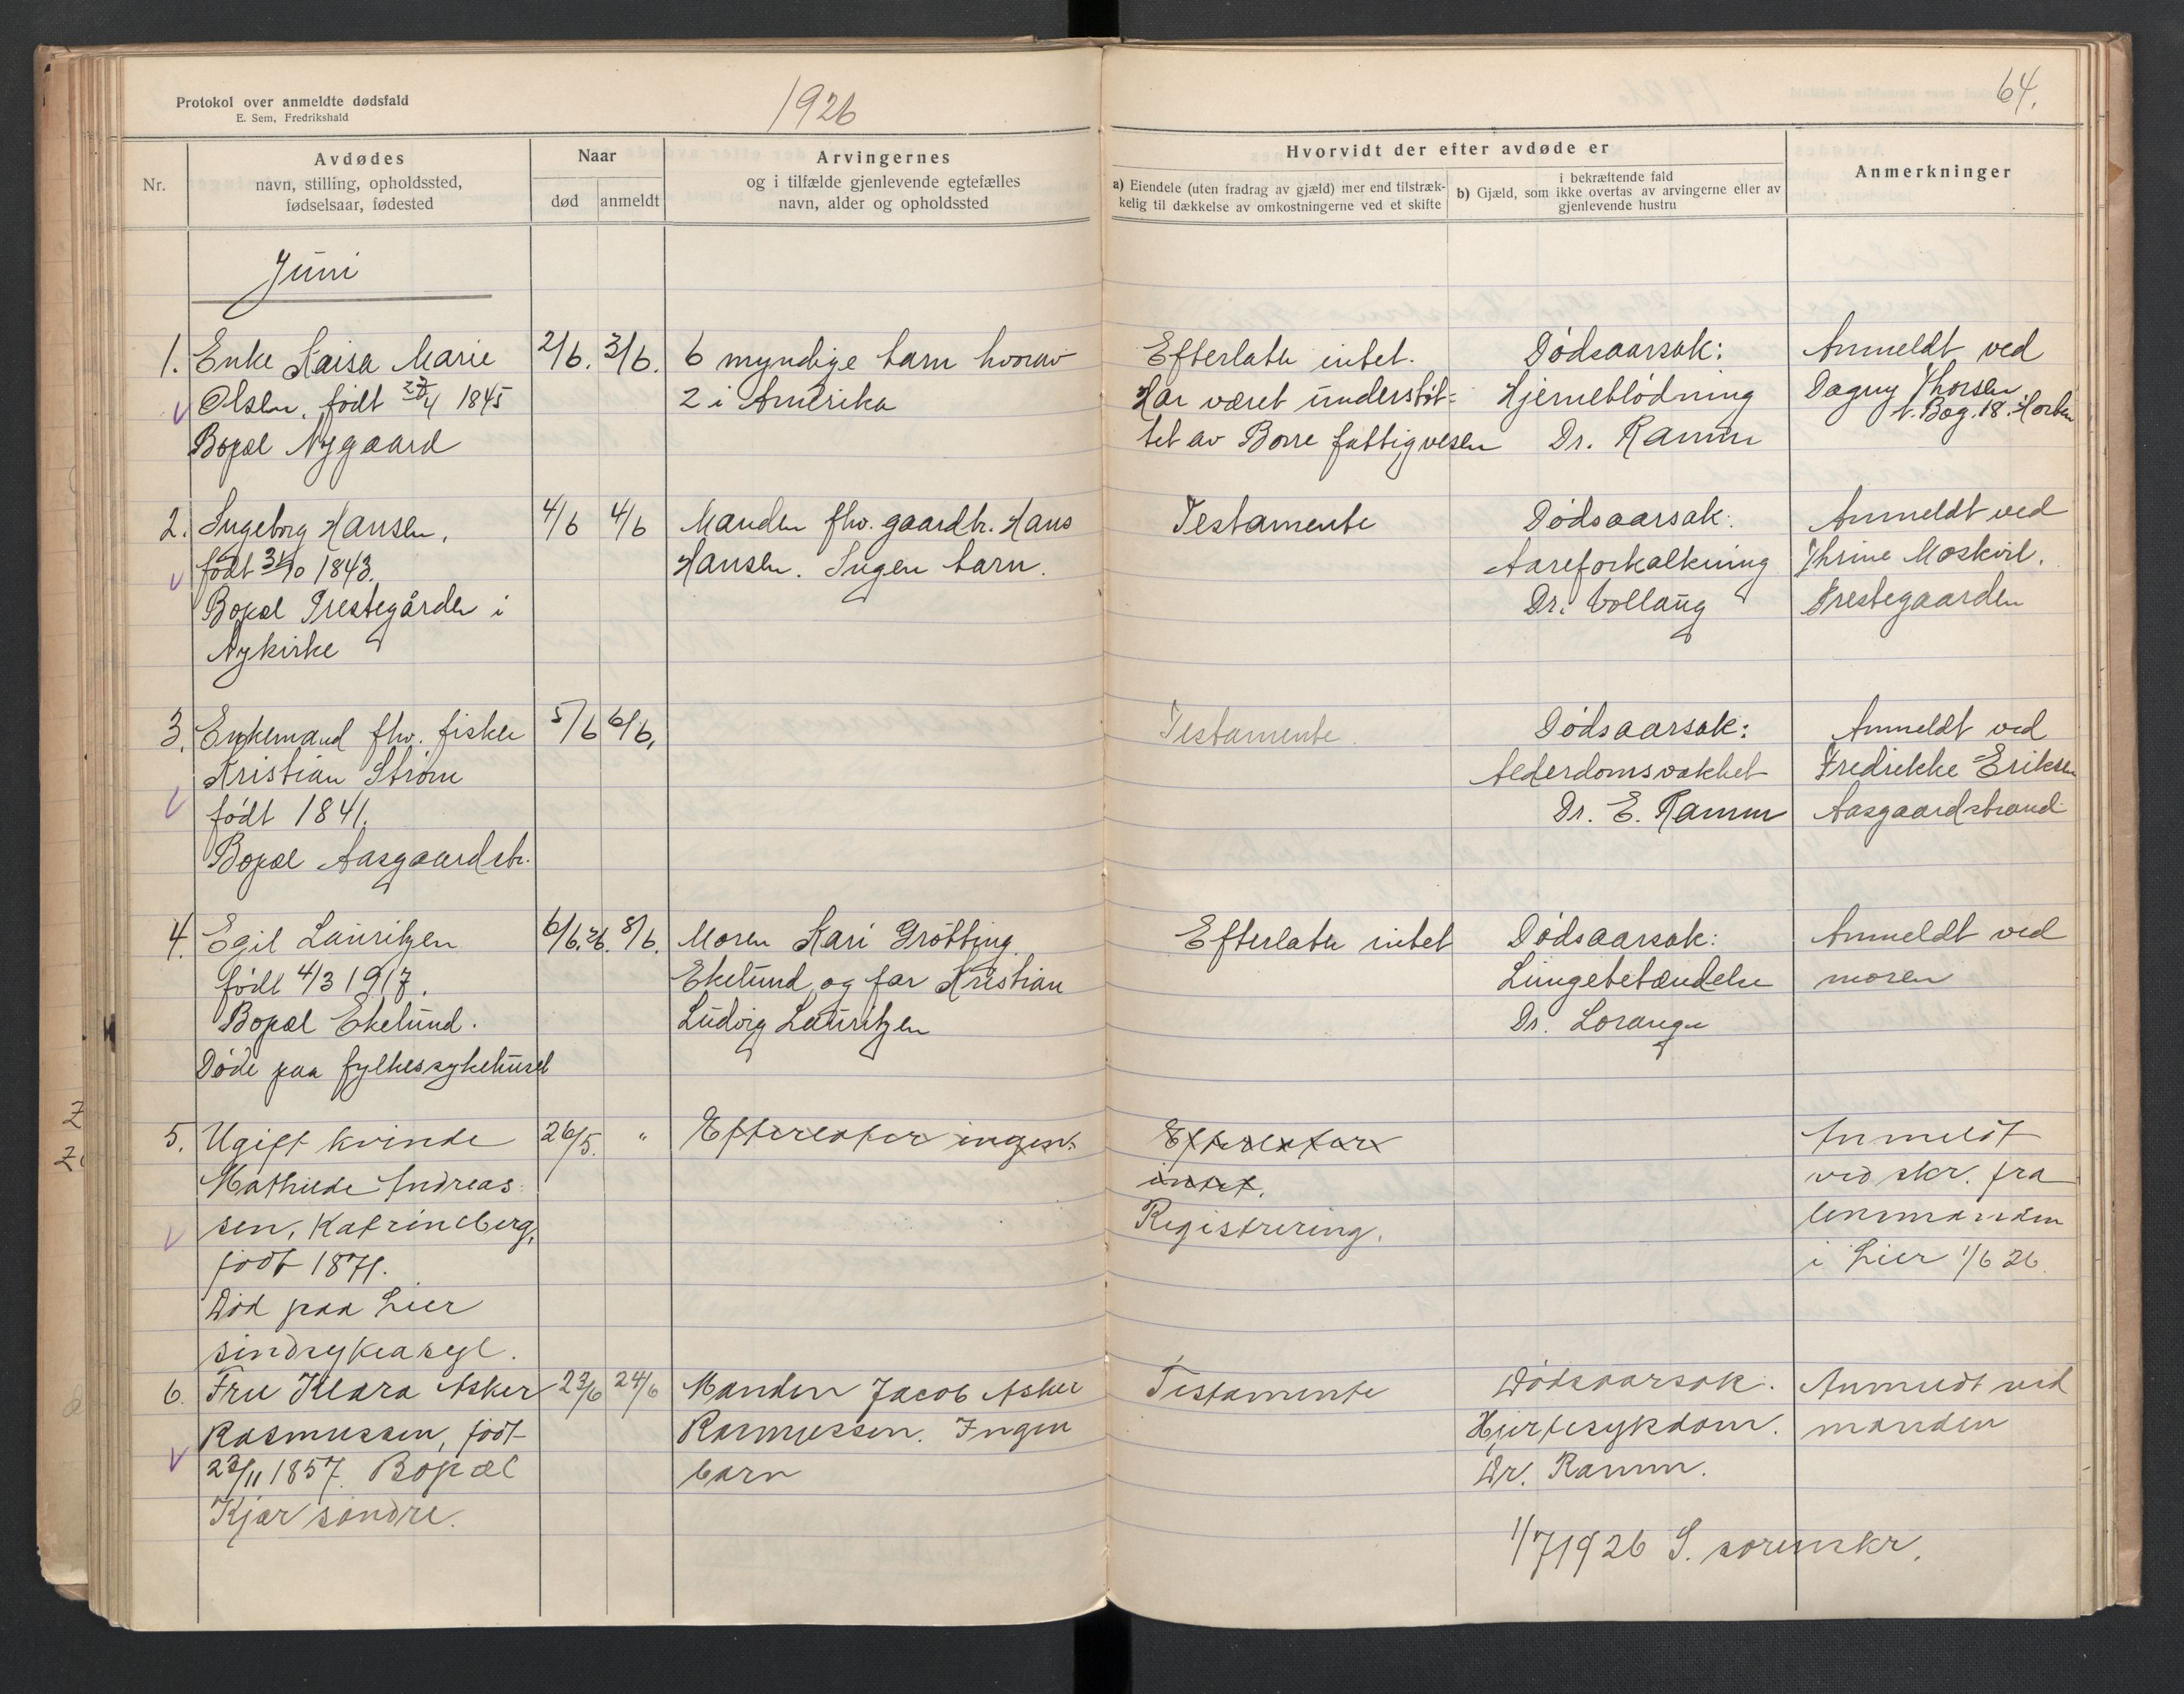 Protokol over anmeldte dødsfald
E. Sem, Fredrikshald
1926
64.
Nr.
Avdødes
navn, stilling, opholdssted,
fødselsaar, fødested
Naar
død
anmeldt
Arvingernes
og i tilfælde gjenlevende egtefælles
navn, alder og opholdssted
Hvorvidt der efter avdøde er
a) Eiendele (uten fradrag av gjæld) mer end tilstræk-
kelig til dækkelse av omkostningerne ved et skifte
i bekræftende fald
b) Gjæld, som ikke overtas av arvingerne eller av
gjenlevende hustru
Anmerkninger
Juni
1. Enke Kaisa Marie
Olsen, født 4 1845
Bopæl Nygaard
2/6. 3/6.
6 myndige barn hvorav
2 i Amerika
Efterlater intet.
Har været understøt-
tet av Borre fattigvesen
Dødsaarsak:
Hjerneblødning
Dr. Ramm
Anmeldt ved
Dagny Thorsen
v. Bag. 18. Horten
2. Ingeborg Hansen,
født 31/10 1843.
Bopæl Prestegården i
Nykirke
4/6 4/6
Manden fhv. gaardbr. Hans
Hansen. Ingen barn.
Testamente
Dødsaarsak:
Aareforkalkning
Dr. Vollaug
Anmeldt ved
Thrine Moskvil.
Prestegaarden
3. Enkemand fhv. fisker
Kristian Strøm
født 1841.
Bopæl Aasgaardstr.
5/6 6/6.
Testamente.
Dødsaarsak:
Alderdomsvakhet
Dr. E. Ramm
Anmeldt ved
Fredrikke Eriksen
Aasgaardstrand
4. Egil Lauritzen
født 4/3 1917.
Bopæl Ekelund.
Døde paa fylkessykehuset
6/6.26. 8/6.
Moren Kari Grøtting
Ekelund og far Kristian
Ludvig Lauritzen
Efterlater intet
Dødsaarsak:
Lungebetændelse
Dr. Lorange
Anmeldt ved
moren
5. Ugift kvinde
Mathilde Andreas-
sen, Katrineberg,
født 1871.
Død paa Lier
sindsykeasyl.
26/5. "
Efterlater ingen.
Efterlater
intet.
Registrering.
Anmeldt
ved skr. fra
lensmanden
i Lier 1/6 26.
6. Fru Klara Asker
Rasmussen, født
23/11 1857. Bopæl
Kjær søndre.
23/6 24/6
Manden Jacob Asker
Rasmussen. Ingen
barn
Testamente
Dødsaarsak:
Hjertesykdom.
Dr. Ramm.
Anmeldt ved
manden
1/7 1926 S. sorenskr.